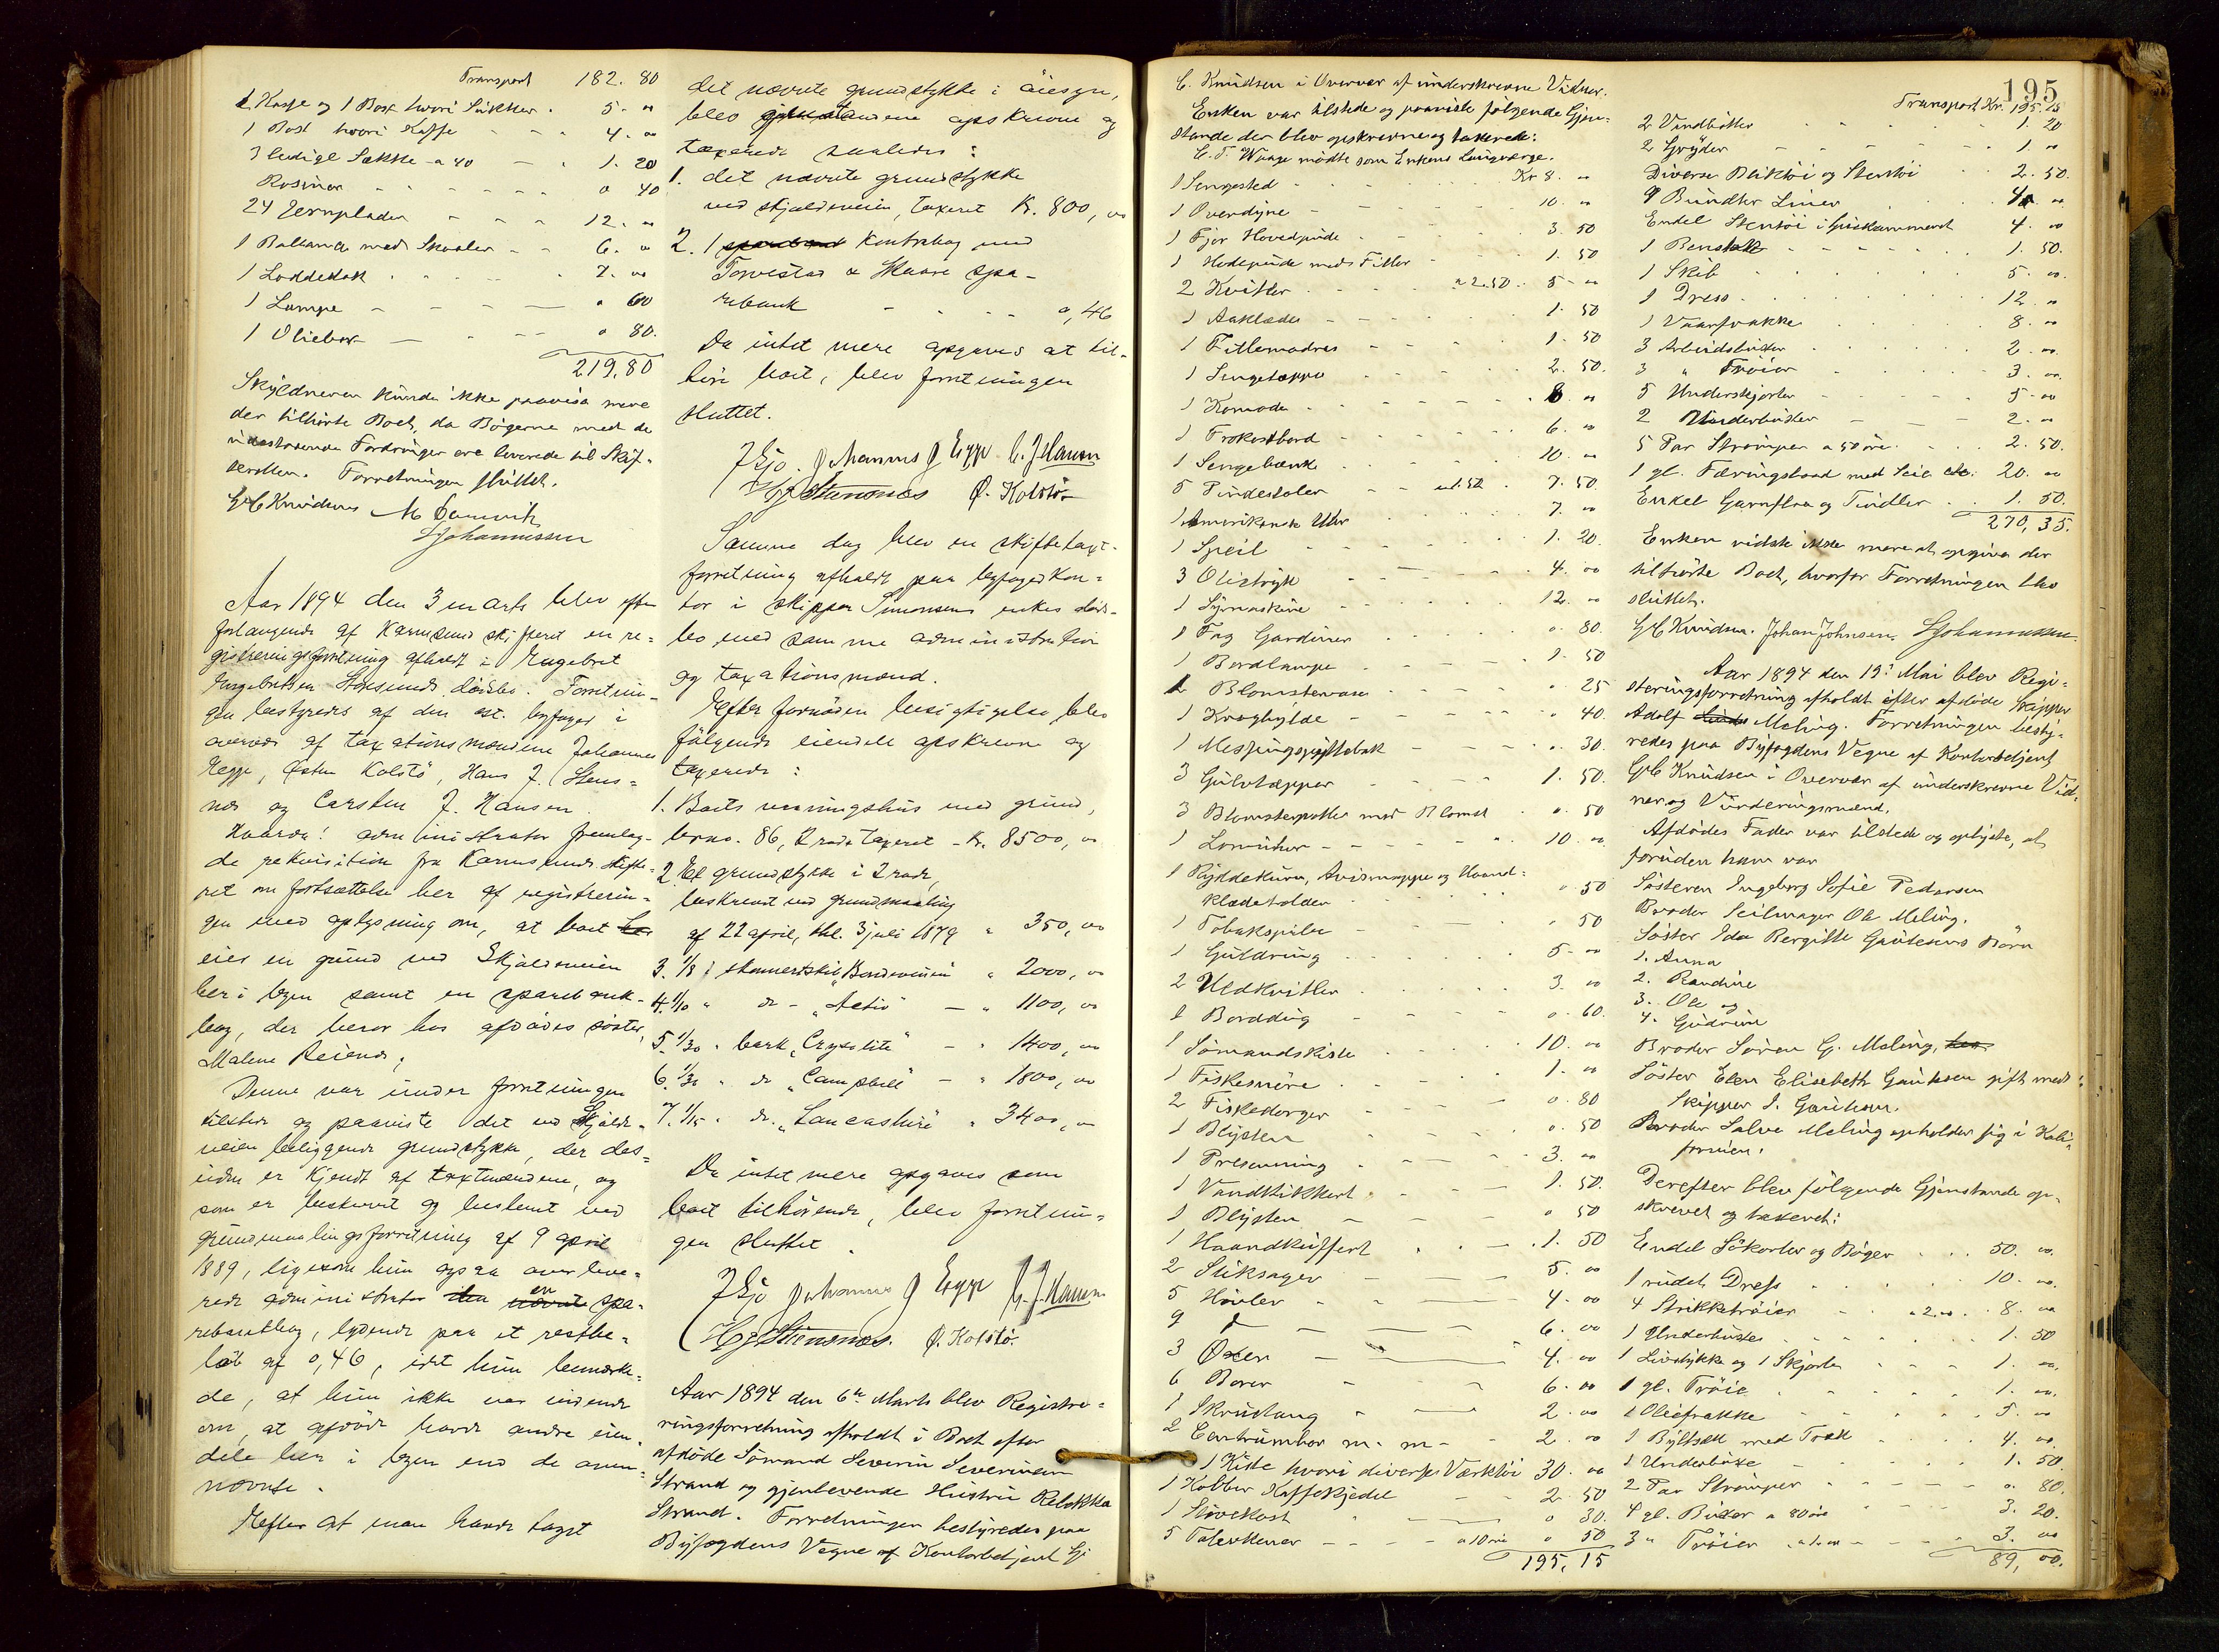 Transport 182. 80
1 Kasse og 1 Box hvori Sukker. 5. "
1 Box hvori Kaffe - - 4. "
3 ledige Sække a 40 - - 1. 20
Rosiner - - - - 0 40
24 Jernplader - - - 12. "
1 Ballance med Skaaler - - 6. "
1 Loddekolt - - - 7. "
1 Lampe - - - " 60
1 Oliebox - - - " 80.
219,80
Skyldneren kunde ikke paavise mere
der tilhørte Boet, da Bøgerne med de
udestaaende Fordringer ere leverede til Skif-
teretten. Forretningen sluttet.
G C Knudsen
Johannessen
Aar 1894 den 3 marts blev efter
forlangende af Karmsund skifteret en re-
gistreringsforretning afholdt i Engebret
Engebretsen Storesunds dødsbo. Forretnin-
gen bestyredes af den cst. byfoged i
overvær af taxationsmændene Johannes
Egge, Østen Kolstø, Hans J. Stens-
næs og Carsten J. Hansen.
Hvorda! administrator fremlag-
de rekvisition fra Karmsunds skifte-
ret om fortsættelse her af registrerin-
gen med oplysning om, at boet
eier en grund ved Skjoldeveien
her i byen samt en sparebank-
bog, der beror hos afdødes søster,
Malene Eeiende.
Denne var under forretningen
tilstede og paaviste det ved Skjolde-
veien beliggende grundstykke, der des-
uden er kjendt af taxtmændene, og
som er beskrevet og bestemt ved
grundmaalingsforretning af 9 april
1889, ligesom hun ogsaa overleve-
rede administrator en spa-
rebankbog, lydende paa et restbe-
løb af 0,46, idet hun bemærke-
de, at hun ikke var vidende
om, at afdøde havde andre eien-
dele her i byen end de oven-
nævnte.
Efter at man havde taget
det nævnte grundstykke i øiesyn,
blev gjenstandene opskrevne og
taxerede saaledes:
1. det nævnte grundstykke
ved skjoldeveien, taxeret Kr. 800, "
2. 1 Kontrabog med
Torvestad & Skaare spa-
rebank - - - 0,46
Da intet mere opgaves at til-
høre boet, blev forretningen
sluttet.
J Gjo. Johannes J Egge C. J Hansen
H J Stensnæs Ø. Kolstø
Samme dag blev en skiftetaxt-
forretning afholdt paa byfogedkon-
tor i skipper Simonsens enkes døds-
bo med samme administration
og taxationsmænd.
Efter fornøden besigtigelse blev
følgende eiendele opskrevne og
taxerede:
1. Boets vaaningshus med grund,
brno. 86, 2 rode taxeret - Kr. 8500, "
2 Et grundstykke i 2 rode,
beskrevet ved grundmaaling
af 22 april, thl. 3 juli 1879 " 350, "
3. 1/8 i skonnertskib "Bondevennen" " 2000, "
4. 1/10 " do - "Activ" - " 1100, "
5. 1/30 " bark "Crysolite" - " 1400, "
6. 1/30 " do "Campbell" - " 1800, "
7. 1/15 " do. "Lancashire" " 3400, "
Da intet mere opgaves som
boet tilhørende, blev forretnin-
gen sluttet.
J Gjo Johannes J Egge C. J. Hansen
H J Stensnæs. Ø. Kolstø.
Aar 1894 den 6te Marts blev Registre-
ringsforretning afholdt i Boet efter
afdøde Sømand Severin Severinsen
Strand og gjenlevende Hustru Rebekka
Strand. Forretningen bestyredes paa
Byfogdens Vegne af Kontorbetjent G.
C. Knudsen i Overvær af underskrevne Vidner.
Enken var tilstede og paaviste følgende Gjen-
stande der blev opskrevne og taxerede:
C. F. Waage mødte som Enkens Laugværge.
1 Sengested - - - Kr 8. "
1 Overdyne - - - 10. "
1 Fjær Hovedpude - - - 3. 50
1 Hovedpude med Filler - - - 1. 50
2 Kvitler - - a 2.50 - 5. "
1 Aaklæde - - - 1. 50
1 Fillemadras - - - 1. 50
1 Sengetæppe - - - 2. 50.
1 Komode - - - 8. "
1 Frokostbord - - - 6. "
1 Sengebænk - - - 10. "
5 Pindestoler - - a 1.50 - 7. 50
1 Amerikansk Uhr - - - 7. "
1 Speil - - - 1. 20.
3 Olietryk - - - 4. "
1 Symaskine - - - 12. "
1 Fag Gardiner - - - 0. 80.
1 Bordlampe - - - 1. 50
2 Blomstervaser - - - " 25
1 Kroghylde - - - " 40.
1 Messingspyttebak - - - " 30.
3 Gulvtæpper - - - 1. 50.
3 Blomsterpotter med Blomst - " 50
1 Lomeuhr - - - 10. "
1 Ryddekurv, Avismappe og Haand-
klædeholder - - - 0. 50
1 Tobakspibe - - - " 50
1 Guldring - - - 5. "
2 Uldkvitler - - - 3. "
1 Borddug - - - 0. 60.
1 Sømandskiste - - - 10. "
1 Fiskesnøre - - - 1. "
2 Fiskestørger - - - 0. 80
1 Blysten - - - 0. 50
1 Presenning - - - 3. "
1 Vandkikkert - - - 1. 50.
1 Blysten - - - " 50
1 Haandkuffert - - - 1. 50
2 Stiksager - - - 5. "
5 Høvler - - - 4. "
9 - - - 6. "
3 Øxer - - - 4. "
6 Borer - - - 6. "
1 Skrutvang - - - 2. "
2 Centrumbor m. m. - - 2. "
1 Kiste hvori diverse Værktøi 30. "
1 Kobber Kaffekjedel - - 2. 50
1 Støvekost - - - 0 30.
5 Talerkener - - a 10 øre 0 50
195,15
195
Transport Kr. 195.15
2 Vandbøtter - - - 1. 20
2 Gryder - - - 1. "
Diverse Bliktøi og Stentøi - 2. 50.
9 Bundter Liner - - 4. "
Endel Stentøi i Spiskammeret 4. "
1 - - - 1. 50.
1 Skib - - - 5. "
1 Dress - - - 12. "
1 Vaarfrakke - - - 8. "
3 Arbeidsbuxer - - - 2. "
3 " Trøier - - - 3. "
5 Underskjorter - - - 5. "
2 Underbuxer - - - 2. "
5 Par Strømper a 50 øre - 2. 50.
1 gl. Færingsbaad med Seil etc. 20. "
Enkel Garnfloa og Tindler - 1. 50.
270,35.
Enken vidste ikke mere at opgive der
tilhørte Boet, hvorfor Forretningen blev
sluttet.
G C Knudsen. Johan Johnsen. Johannessen
Aar 1894 den 19de Mai blev Regi-
streringsforretning afholdt efter afdøde Skipper
Adolf Meling. Forretningen besty-
redes paa Byfogdens Vegne af Kontorbetjent
G C Knudsen i Overvær af underskrevne Vid-
ner og Vurderingsmænd.
Afdødes Fader var tilstede og oplyste, at
foruden ham var
Søsteren Ingeborg Sofie Pedersen
Broder Seilmager Ole Meling.
Søster Ida Bergitte Gautesens Børn
1. Anna
2. Randine
3. Ole og
4. Gudrun
Broder Søren G. Meling,
Søster Elen Elisebeth Gautesen gift med
Skipper S. Gautesen.
Broder Salve Meling opholder sig i Kali-
fornien.
Derefter blev følgende Gjenstande op-
skrevet og taxeret:
Endel Søkarter og Bøger - - 50. "
1 rudet Dress - - - 10. "
4 Strikketrøier - - a 2.00 - 8. "
1 Underbuxe - - - 1. 50
1 Livstykke og 1 Skjorte - - 1. "
1 gl. Trøie - - - 1. "
1 Oliefrakke - - - 5. "
1 Byltsæk med Træk - - 4. "
1 Underbuxe - - - 1. 50.
2 Par Strømper - - - " 80.
4 gl. Buxer a 80 øre - 3. 20.
3 " Trøier a 1.00 - - 3. "
89,00.